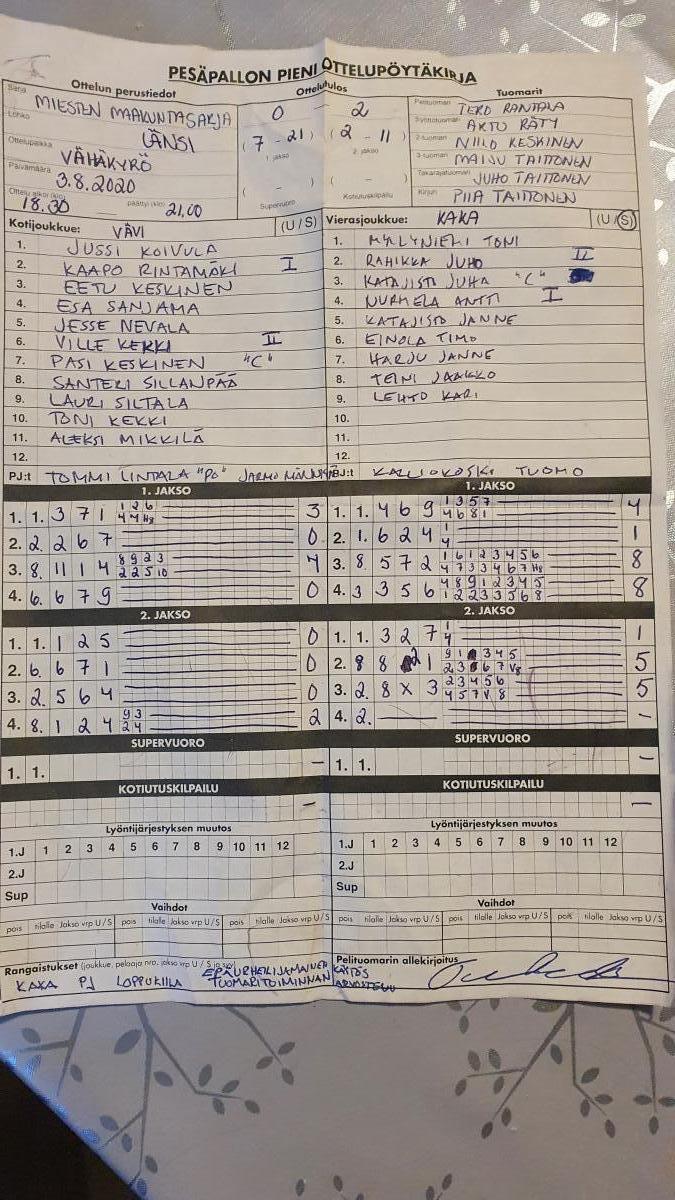 PESÄPALLON PIENI OTTELUPÖYTÄKIRJA
Ottelun perustiedot
Sarja
MIESTEN MAAKUNTASARJA
Lohko
LÄNSI
Ottelupaikka
VÄHÄKYRÖ
Päivämäärä
3.8.2020
Ottelu alkoi (klo)
18.30
päättyi (klo)
21.00
Ottelutulos
0 – 2
(7 - 21) (2 - 11)
1. jakso 2. jakso
( - ) ( - )
Supervuoro Kotiutuskilpailu
Tuomarit
Pelituomari TERO RANTALA
Syöttötuomari AKTO RÄTY
2-tuomari NIILO KESKINEN
3-tuomari MAIJU TAITTONEN
Takarajatuomari JUHO TAITTONEN
Kirjuri PIIA TAITTONEN
Kotijoukkue: VÄVI (U/S)
1. JUSSI KOIVULA
2. KAAPO RINTAMÄKI I
3. EETU KESKINEN
4. ESA SANJAMA
5. JESSE NEVALA
6. VILLE KEKKI II
7. PASI KESKINEN "C"
8. SANTERI SILLANPÄÄ
9. LAURI SILTALA
10. TONI KEKKI
11. ALEKSI MIKKILÄ
12.
PJ:t TOMMI LINTALA "PO" JARMO
Vierasjoukkue: KAKA (U/S)
1. MYLLYNIEMI TONI
2. RAHIKKA JUHO II
3. KATAJISTO JUHA "C"
4. NURMELA ANTTI I
5. KATAJISTO JANNE
6. EINOLA TIMO
7. HARJU JANNE
8. TEINI JAAKKO
9. LEHTO KARI
10.
11.
12.
PJ:t KALLIOKOSKI TUOMO
1. JAKSO
1. 1. 3 7 1 1 2 6 3
4 4 H8
2. 2. 2 6 7 0
3. 8. 11 1 4 8 9 2 3 4
2 2 5 10
4. 6. 6 7 9 0
2. JAKSO
1. 1. 1 2 5 0
2. 6. 6 7 1 0
3. 2. 5 6 4 0
4. 8. 1 2 4 9 3 2
2 4
SUPERVUORO
1. 1. –
KOTIUTUSKILPAILU
–
1. JAKSO
1. 1. 4 6 9 1 3 5 7 4
4 6 8 1
2. 1. 6 2 4 1 1
4
3. 8 5 7 2 1 6 1 2 3 4 5 6 8
4 7 3 3 4 6 7 H8
4. 3 3 5 6 4 8 9 1 2 3 4 5 8
1 2 2 3 3 5 6 8
2. JAKSO
1. 1. 3 2 7 1 1
4
2. 8 8 2 1 9 1 3 4 5 5
2 3 6 7 V8
3. 2. 8 X 3 2 3 4 5 6 5
4 5 7 V 8
4. 2. — –
SUPERVUORO
1. 1. –
KOTIUTUSKILPAILU
–
Lyöntijärjestyksen muutos
1.J 1 2 3 4 5 6 7 8 9 10 11 12
2.J
Sup
Lyöntijärjestyksen muutos
1.J 1 2 3 4 5 6 7 8 9 10 11 12
2.J
Sup
Vaihdot
pois tilalle Jakso vrp U/S pois tilalle Jakso vrp U/S pois tilalle Jakso vrp U/S
Vaihdot
pois tilalle Jakso vrp U/S pois tilalle Jakso vrp U/S pois tilalle Jakso vrp U/S
Rangaistukset (joukkue, pelaaja nro, jakso vrp U / S ja syy)
KAKA PJ LOPPUKIILA EPÄURHEILIJAMAINEN KÄYTÖS
TUOMARITOIMINNAN ARVOSTELU
Pelituomarin allekirjoitus